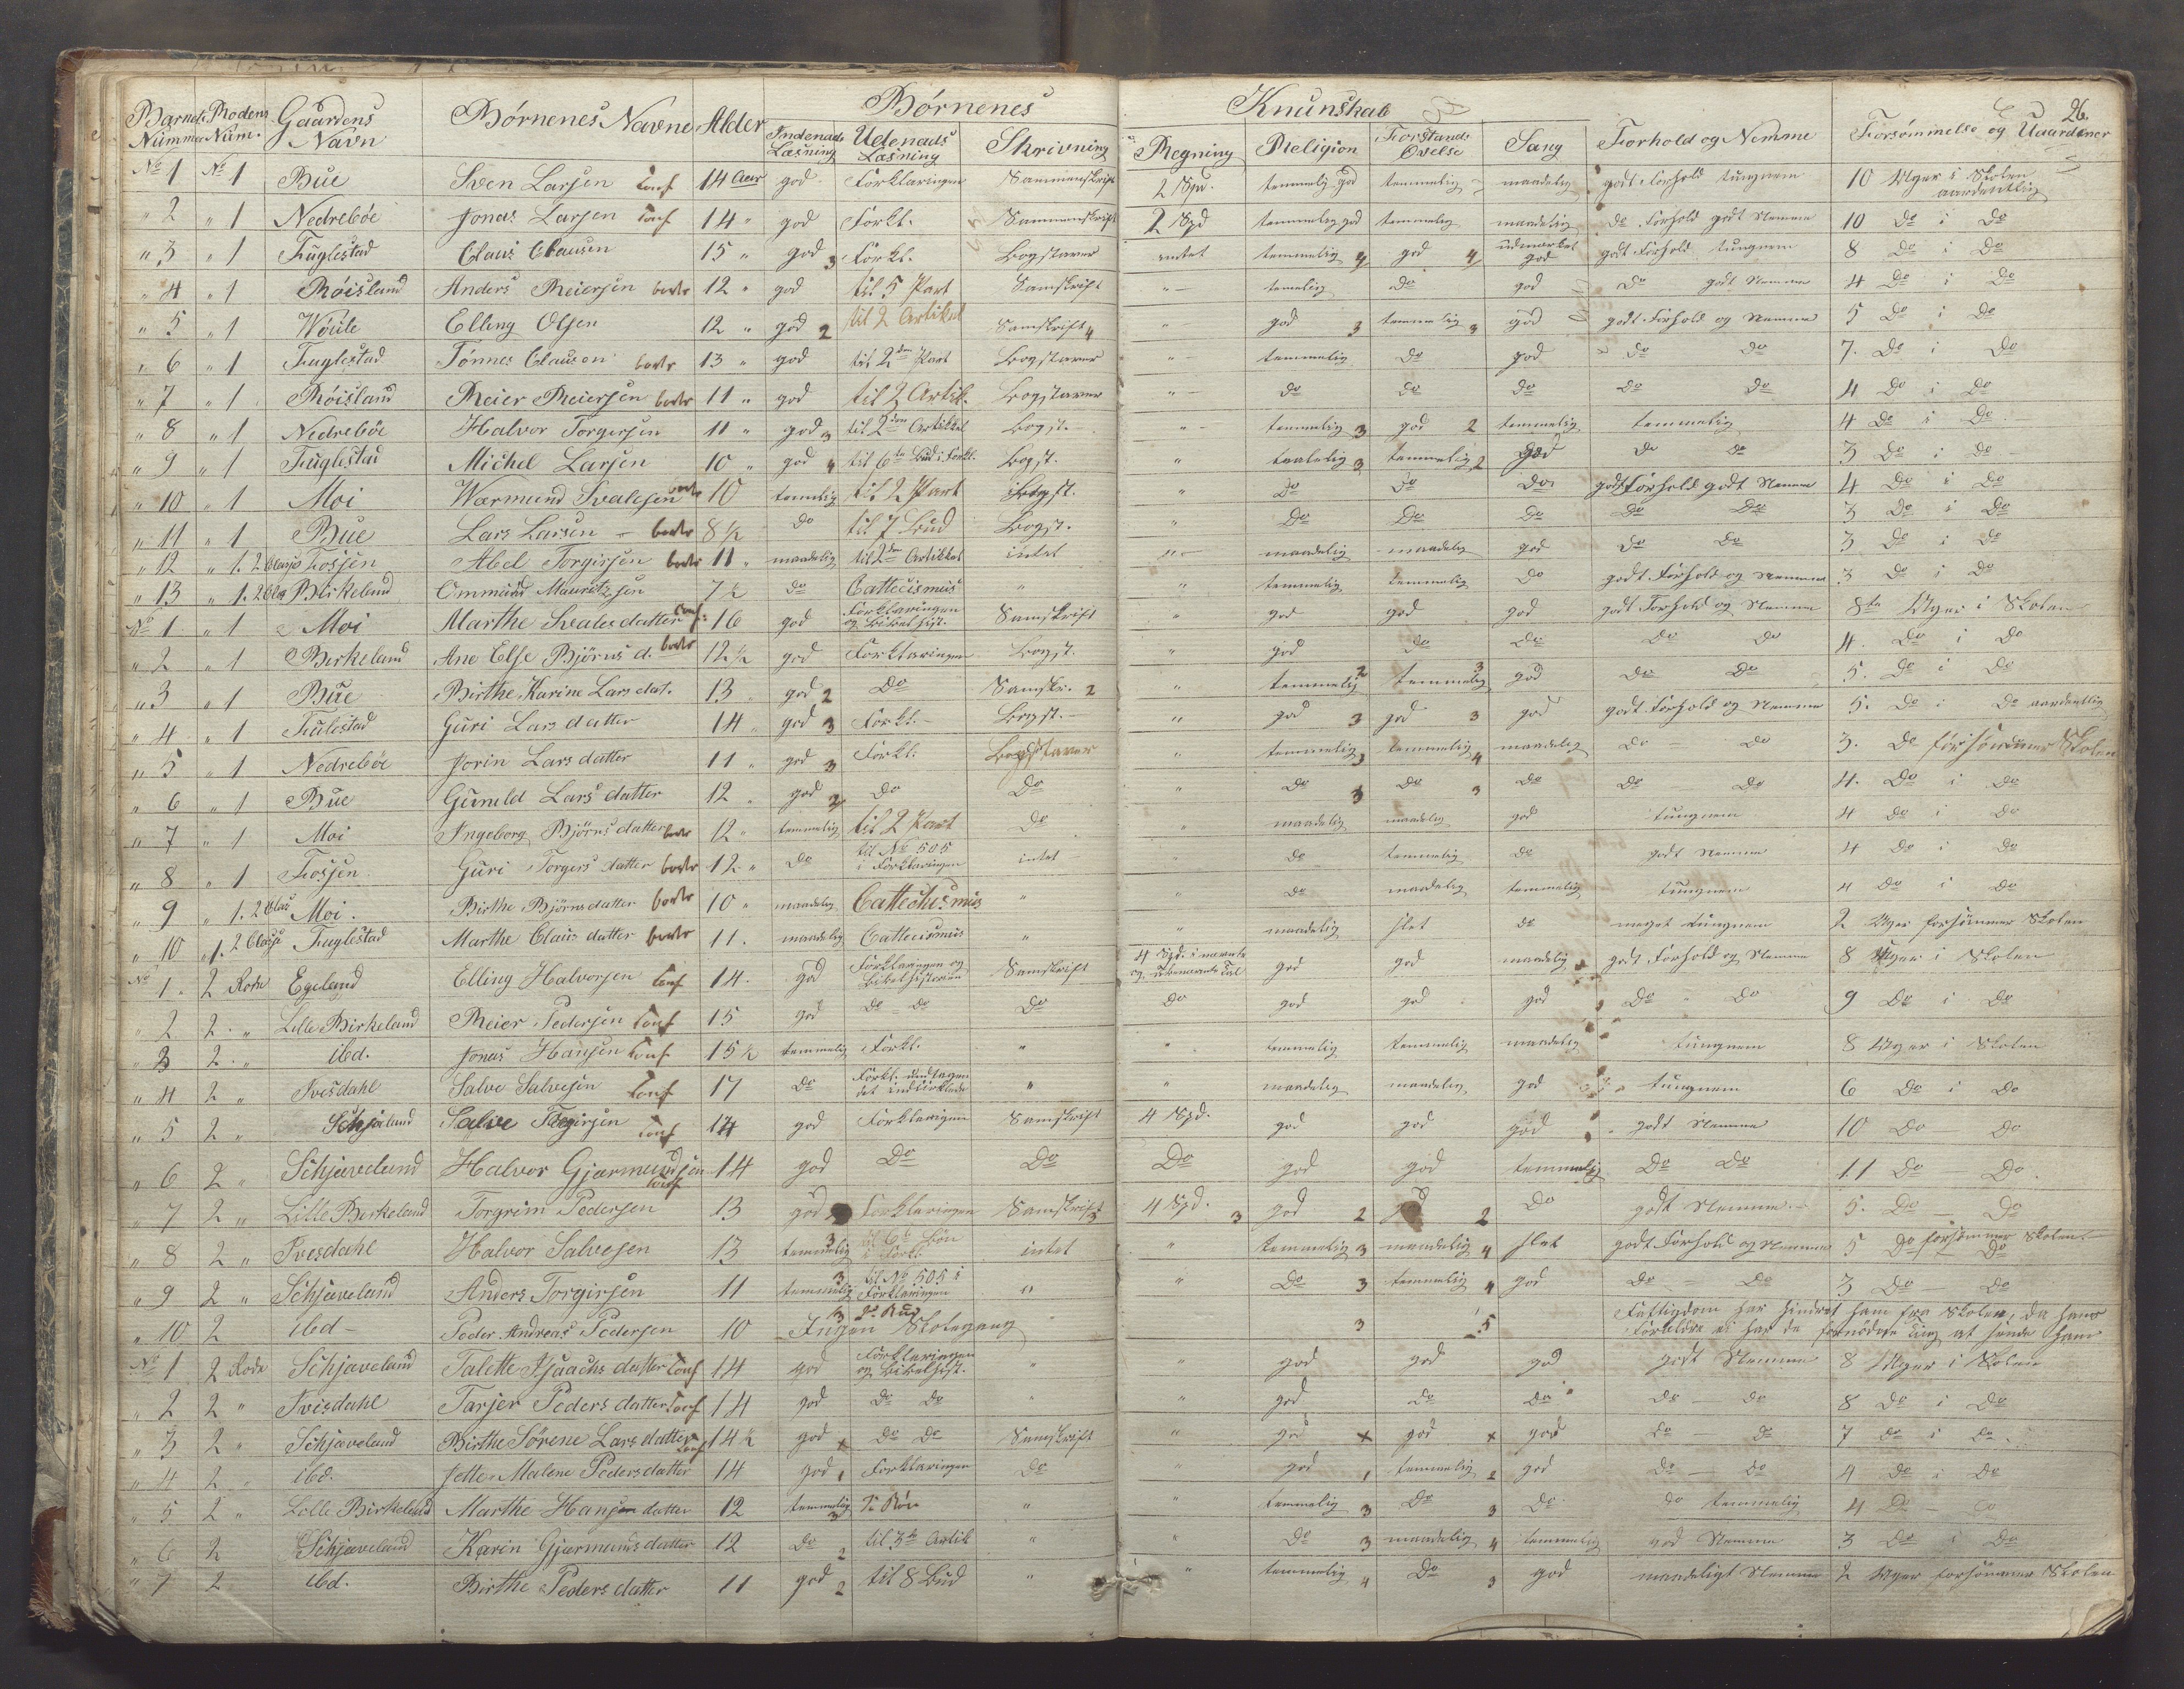 26.
Barnets Nummer Rodens Num. Gaardens Navn Børnenes Navne Alder Børnenes Knunskab
Indenads Læsning Udenads Læsning Skrivning Regning Religion Forstands Øvelse Sang Forhold og Nemme Forsømmelse og Uaardener
No 1 No 1 Bue Sven Larsen Conf 14 Aar god Forklaringen Sammenskrift 2 Spd. temmelig god temmelig maadelig godt Forhold tungnem 10 Uger i Skolen uardentlig
" 2 " 1 Nedrebøe Jonas Larsen Conf 14 " god Forkl. Sammenskrift 2 Spd temmelig god temmelig maadelig do Forhold godt Nemme 10 Do i Do
" 3 " 1 Fuglestad Claus Clausen 15 " god 3 Forkl. Bogstaver intet temmelig 4 god 4 udmærket god godt Forhold tungnem 8 Do i Do
" 4 " 1 Røisland Anders Reiersen borte 12 " god til 5 Part Samskrift " temelig Do god Do godt Nemme 4 Do i Do
" 5 " 1 Elling Olsen 12 " god 2 til 2 Artikel Samskrift 4 " god 3 temmelig 3 god godt Forhold og Nemme 5 Do i Do
" 6 " 1 Fuglestad Tønnes Clausen borte 13 " god til 2den Part Bogstaver " temmelig Do god Do Do 7. Do i Do
" 7 " 1 Røisland Reier Reiersen borte 11 " god til 2 Artik. Bogstaver " Do Do Do Do Do 4 Do i Do
" 8 " 1 Nedrebøe Halvor Torgersen 11 " god 3 til 2den Artikkel Bogst. " temmelig 3 god 2 temmelig temmelig 4 Do i Do
" 9 " 1 Fuglestad Michel Larsen 10 " god 4 til 6te Bud i Forkl. Bogst. " taalelig 3 temmelig 2 god Do Do 3 Do i Do
" 10 " 1 Moi Wærmund Svalesen borte 10 temmelig til 2 Part Bogst. " Do Do Do godt Forhold godt Nemme 4 Do i Do
" 11 " 1 Bue Lars Larsen borte 8 1/2 Do til 7 Bud Bogst. " Do Do Do Do Do 3 Do i Do
" 12 " 1. 2 Classe Fosjen Abel Torgirsen borte 11 " maadelig til 2den Artikkel intet " maadelig maadelig god Do Do 3 Do i Do
" 13 " 1. 2 Clas Birkeland Ommund Mauritzsen 7 1/2 Do Cattecismus " " temmelig temmelig Do godt Forhold og Nemme 3 Do i Do
No 1 " 1 Moi Marthe Svalesdatter Conf: 16 god Forklaringen og Bibelhist. Samskrift " god god god godt Forhold og Nemme 8te Uger i Skolen
" 2 " 1 Birkeland Ane Else Bjørns d. borte 12 1/2 god Forklaringen Bogst. " god Do Do Do Do 4. Do i Do
" 3 " 1 Bue Birthe Karine Lars dat. 13 god 2 Do Samskr. 2 " temmelig 2 temmelig 3 god Do Do 5. Do i Do
" 4 " 1 Fulestad Guri Lars datter 14 " god 3 Forkl. Bogst. " god 3 god 3 god godt Forhold og Nemme 5. Do i Do uardentlig
" 5 " 1 Nedrebøe Jorin Lars datter 11 " god 3 Forkl. Bogstaver " temmelig 3 temmelig 4 maadelig Do Do 3. Do forsømmer Skolen
" 6 " 1 Bue Gunild Lars datter 12 " god 2 Do Do " Do 3 Do 3 Do Do Do 4. Do i Do
" 7 " 1 Moi Ingeborg Bjørns datter borte 12 " temmelig til 2 Part Do " maadelig maadelig god tungnem 4 Do i Do
" 8 " 1 Fosjen Guri Torgers datter borte 12 " Do til No 505 i Forklaringen intet " Do temmelig Do godt Nemme 4 Do i Do
" 9 " 1. 2 Clas Moi. Birthe Bjørnsdatter borte 10 " maadelig Cattechismus " " Do maadelig temmelig tungnem 4 Do i Do
" 10 " 1. 2 Classe Fuglestad Marthe Claus datter borte 11. maadelig Cattecismus " " maadelig slet Do meget tungnem 2 Uger forsømmer Skolen
No 1. 2 Rode Egeland Elling Halvorsen Conf 14. god Forklaringen og Bibelhistorien Samskrift 4 Spd. i nævnte og ubenævnte Tal god god maadelig godt Forhold og Nemme 8 Uger i Skolen
" 2 2 " Lille Birkeland Reier Pedersen Conf 15 god Do Do Do Do god god god Do Do 9 Do i Do
" 3 2 " ibd. Jonas Hansen Conf 15 1/2 temmelig Forkl. " " temmelig temmelig maadelig tungnem 8 Uger i Skolen
" 4 2 " Ivesdahl Salve Salvesen Conf 17 Do Forkl. undtagen det indcirklede " " maadelig maadelig god tungnem 6 Do i Do
" 5 2 " Salve Torgirsen Conf 14 god Forklaringen Samskrift 4 Spd. god god god godt Nemme 10 Do Do
" 6 2 " Schjaveland Halvor Gjærmundsen Conf 14 god Do Do Do god god temmelig Do Do 11 Do Do
" 7 2 " Lille Birkeland Torgrim Pedersen 13 god Forklaringen Samskrift 3 4 Spd. 3 god 2 god 2 Do godt Nemme 5. Do Do
" 8 2 " Ivesdahl Halvor Salvesen 13 temmelig 3 til 6te Bøn i Forkl. intet " temmelig 3 maadelig 4 slet godt Forhold og Nemme 5 Do forsømmer Skolen Do
" 9 2 " Schjaveland Anders Torgirsen 11 temmelig 3 til No 505 i Forklaringen " " Do 3 temmelig 4 god Do Do 3 Do Do
" 10 2 ibd Peder Andreas Pedersen 10 Ingen Skolegang 3 3 5 Fattigdom har hindret ham fra Skolen, da hans Forældre ei har de fornødne Ting at sende ham
No 1 2 Rode Schjaveland Talette Isaachs datter Conf 14 god Forklaringen og Bibelhist. " " god god god godt Nemme 8 Uger i Skolen
" 2 2 " Ivisdahl Tarjer Peders datter Conf 14 god Do Do " " god Do Do Do Do 8 Do i Do
" 3 2 " Schjaveland Birthe Sørene Lars datter Conf 14 1/2 god x Do Do Samskrift " god x god x god Do Do 7 Do i Do
" 4 2 " ibd. Jette Malene Pedersdatter 14 god 1 Forklaringen Do " god 1 temmelig 2 god Do Do 4 Do i Do
" 5 2 " Lille Birkeland Marthe Hansdatter 12 temmelig 3 " " temmelig 3 Do 3 Do Do temmelig 4 Do Do
" 6 2 Schjaveland Karin Gjærmunds datter 12 Do 2 til 3de Artik " " Do 3 maadelig 4 temmelig god Nemme 3 Do i Do
" 7 2 ibd. Birthe Peders datter 11 god 2 til 8 Bud " " temmelig 4 Do 3 god maadeligt Nemme 2 Uger forsømmer Skolen